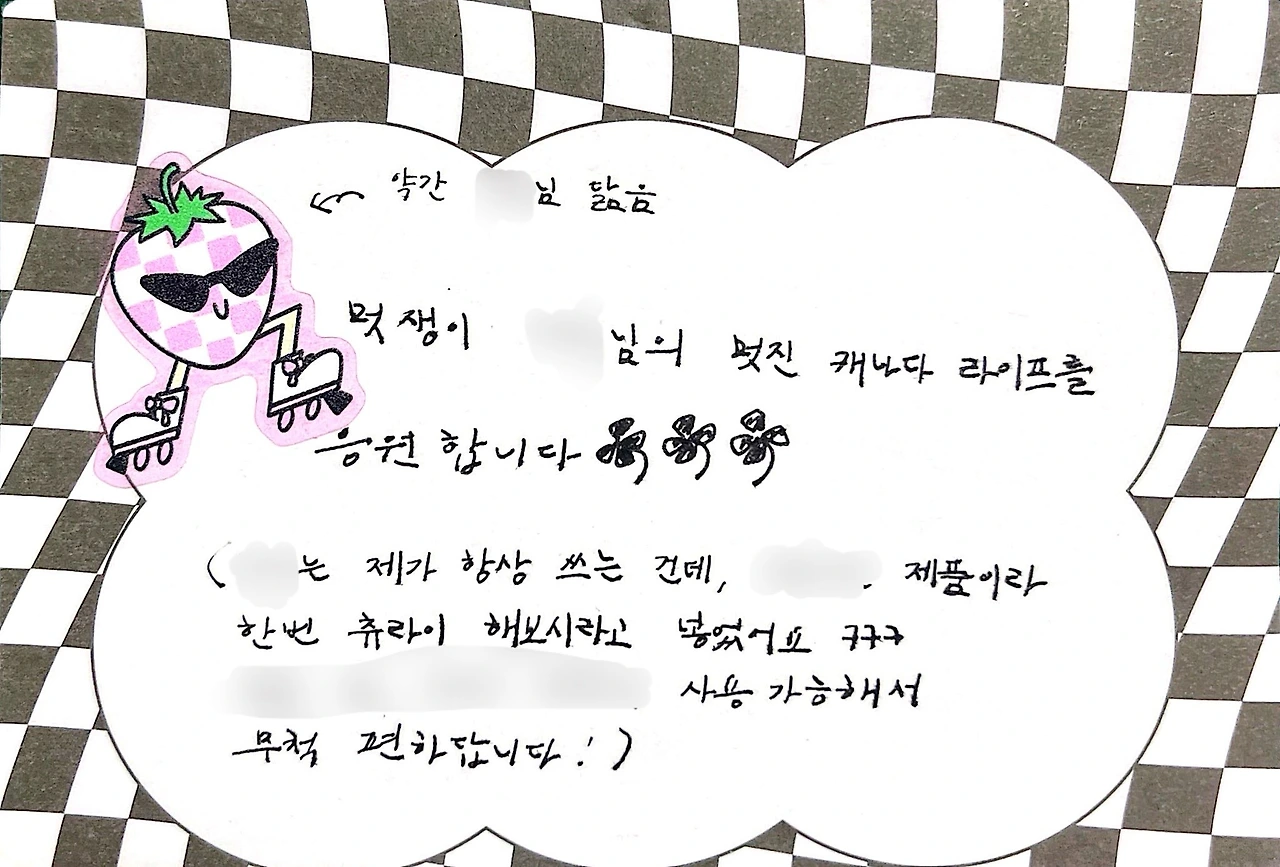 약간 님 닮음
멋쟁이 님의 멋진 캐나다 라이프를
응원합니다
( 는 제가 항상 쓰는 건데, . 제품이라
한번 츄라이 해보시라고 넣었어요 ㅋㅋㅋ
사용 가능해서
무척 편하답니다!)